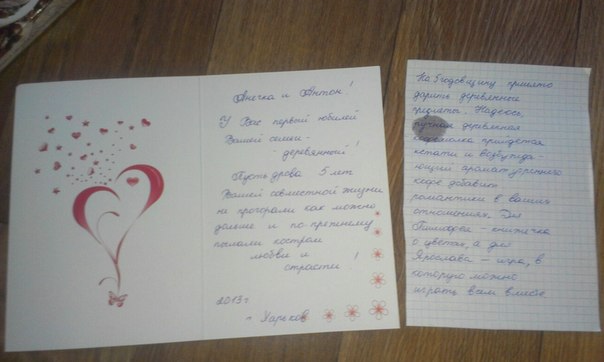 Анечка и Антон!
У Вас первый юбилей
Вашей семьи -
- деревянный!
Пусть дрова 5 лет
Вашей совместной жизни
не прогорали как можно
дольше и по-прежнему
пылали костром
любви и
страсти!
2013г
г. Харьков
На 5 годовщину принято
дарить деревянные
предметы. Надеюсь,
ручная деревянная
кофемолка придется
кстати и возбужда-
ющий аромат утреннего
кофе добавит
романтики в ваших
отношениях. Для
- книжечка
о цветах, а для
Ярослава - игра, в
которую можно
играть всем вместе